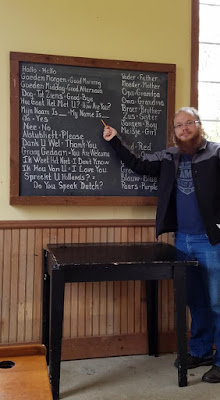 Hallo - Hello
Goeden Morgen - Good Morning
Goeden Middag - Good Afternoon
Dag - Tot Ziens - Good-Bye
Hoe Gaat Het Met U? - How Are You?
Mijn Naam Is __ - My Name Is __
Ja - Yes
Nee - No
Alstublieft - Please
Dank U Wel - Thank You
Graag Gedaan - You Are Welcome
Ik Weet Het Niet - I Don't Know
Ik Hou Van U - I Love You
Spreekt U Hollands? =
Do You Speak Dutch?
Vader - Father
Moeder - Mother
Opa - Grandpa
Oma - Grandma
Broer - Brother
Zus - Sister
Jongen - Boy
Meisje - Girl
Red
Blauw - Blue
Paars - Purple